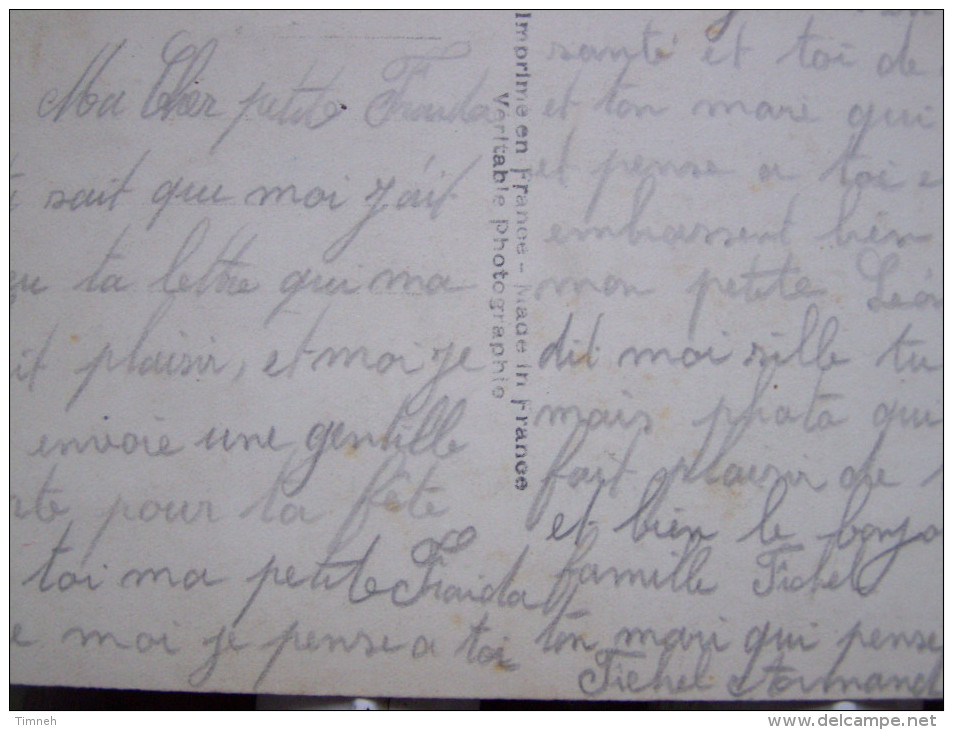 Ma Cher petite Fraida
sait que moi j'ait
ta lettre qui ma
it plaisir, et moi je
envoie une gentille
rte pour ta fête
toi ma petite Fraida
e moi je pense a toi
Imprimé en France - Made in France
Véritable photographie
santé et toi de
et ton mare qui
et pense a toi e
embrassent bien
mon petite Léon
dit moi sille tu
mais phota qui
fait plaisir de
et bien le bonjo
famille Fichel
ton mari qui pense
Fichel Armand
Timneh
www.delcampe.net